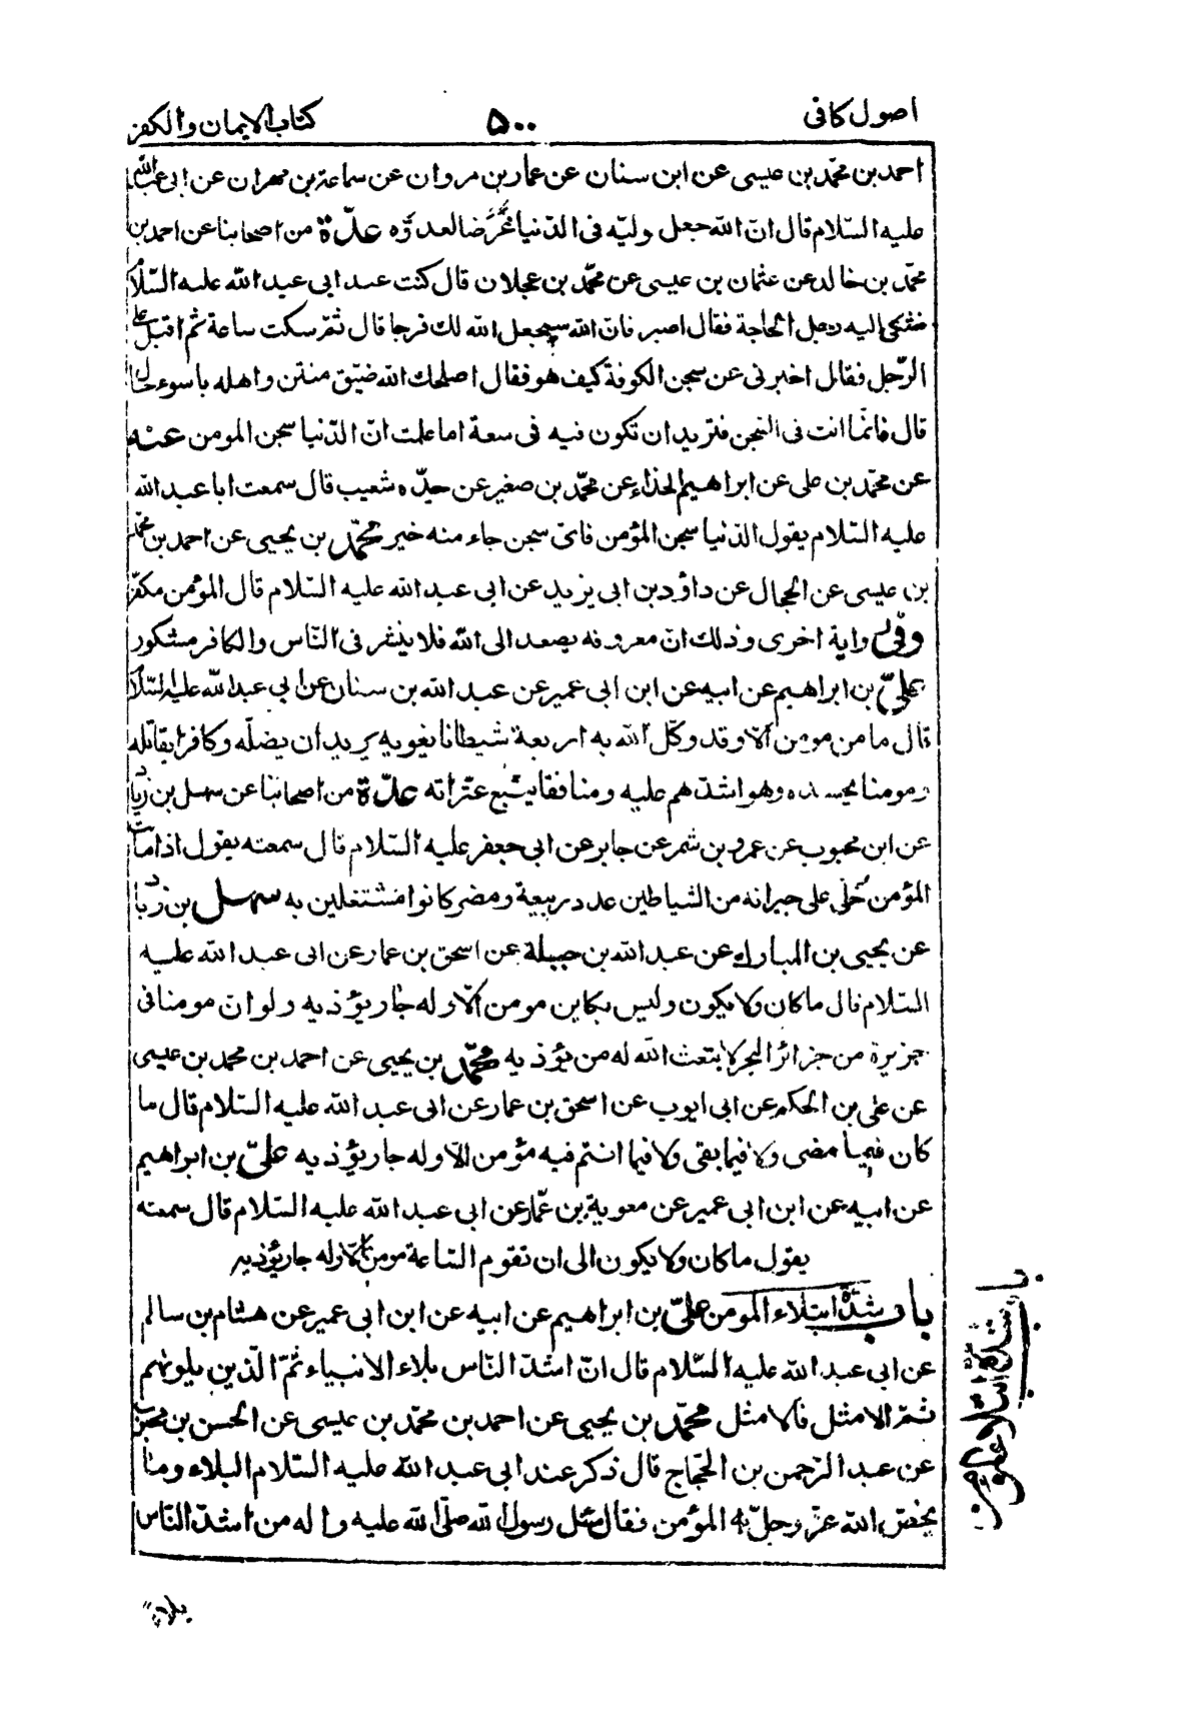 اصول كافى
۵۰۰
كتاب الايمان والكفر
احمد بن محمّد بن عيسى عن ابن سنان عن عمار بن مروان عن سماعة بن مهران عن ابى عبد الله
عليه السّلام قال انّ الله جعل وليّه فى الدّنيا غرَضا لعدوّه عدّة من اصحابنا عن احمد بن
محمّد بن خالد عن عثمان بن عيسى عن محمّد بن عجلان قال كنت عند ابى عبد الله عليه السّلام
فشكى اليه رجل الحاجة فقال اصبر فانّ الله سيجعل الله لك فرجا قال ثمّ سكت ساعة ثم اقبل على
الرّجل فقال اخبرنى عن سجن الكوفة كيف هو فقال اصلحك الله ضيّق منتن واهله باسوء حال
قال فانّما انت فى السّجن فتريد ان تكون فيه فى سعة اما علمت انّ الدّنيا سجن المومن عنه
عن محمّد بن على عن ابراهيم الحذاء عن محمّد بن صغير عن جدّه شعيب قال سمعت ابا عبد الله
عليه السّلام يقول الدّنيا سجن المؤمن فاىّ سجن جاء منه خير محمّد بن يحيى عن احمد بن محمّد
بن عيسى عن الحجال عن داؤد بن ابى يزيد عن ابى عبد الله عليه السّلام قال المؤمن مكفّر
وفى رواية اخرى وذلك انّ معروفه يصعد الى الله فلا ينشر فى النّاس والكافر مشكور
علىّ بن ابراهيم عن ابيه عن ابن ابى عمير عن عبد الله بن سنان عن ابى عبد الله عليه السّلام
قال ما من مومن الّا وقد وكّل الله به اربعة شيطانا يغويه يريد ان يضلّه وكافرا يقاتله
ومومنا يحسده وهو اشدّهم عليه ومنافقا يتّبع عثراته عدّة من اصحابنا عن سهل بن زياد
عن ابن محبوب عن عمرو بن شمر عن جابر عن ابى جعفر عليه السّلام قال سمعته يقول اذا مات
المؤمن خلّى على جيرانه من الشياطين عدد ربيعة ومضر كانوا مشتغلين به سهل بن زياد
عن يحيى بن المبارك عن عبد الله بن جبلة عن اسحق بن عمار عن ابى عبد الله عليه
السّلام قال ما كان ولا يكون وليس بكاين مومن الّا وله جار يؤذيه ولو انّ مومنا فى
جزيرة من جزائر البحر لابتعث الله له من يؤذيه محمّد بن يحيى عن احمد بن محمد بن عيسى
عن على بن الحكم عن ابى ايوب عن اسحق بن عمار عن ابى عبد الله عليه السّلام قال ما
كان فيما مضى ولا فيما بقى ولا فيما انتم فيه مؤمن الّا وله جار يؤذيه علىّ بن ابراهيم
عن ابيه عن ابن ابى عمير عن معوية بن عمّار عن ابى عبد الله عليه السّلام قال سمعته
يقول ما كان ولا يكون الى ان تقوم السّاعة مومن الّا وله جار يؤذيه
باب شدّة ابتلاء المومن علىّ بن ابراهيم عن ابيه عن ابن ابى عمير عن هشام بن سالم
عن ابى عبد الله عليه السّلام قال انّ اشدّ النّاس بلاء الانبياء ثمّ الّذين يلونهم
ثمّ الامثل فالامثل محمّد بن يحيى عن احمد بن محمّد بن عيسى عن الحسن بن محبوب
عن عبد الرّحمن بن الحجّاج قال ذكر عند ابى عبد الله عليه السّلام البلاء وما
يخصّ الله عزّ وجلّ به المؤمن فقال سئل رسول الله صلّى الله عليه واله من اشدّ النّاس
بلاء
باب شدة ابتلاء المومن